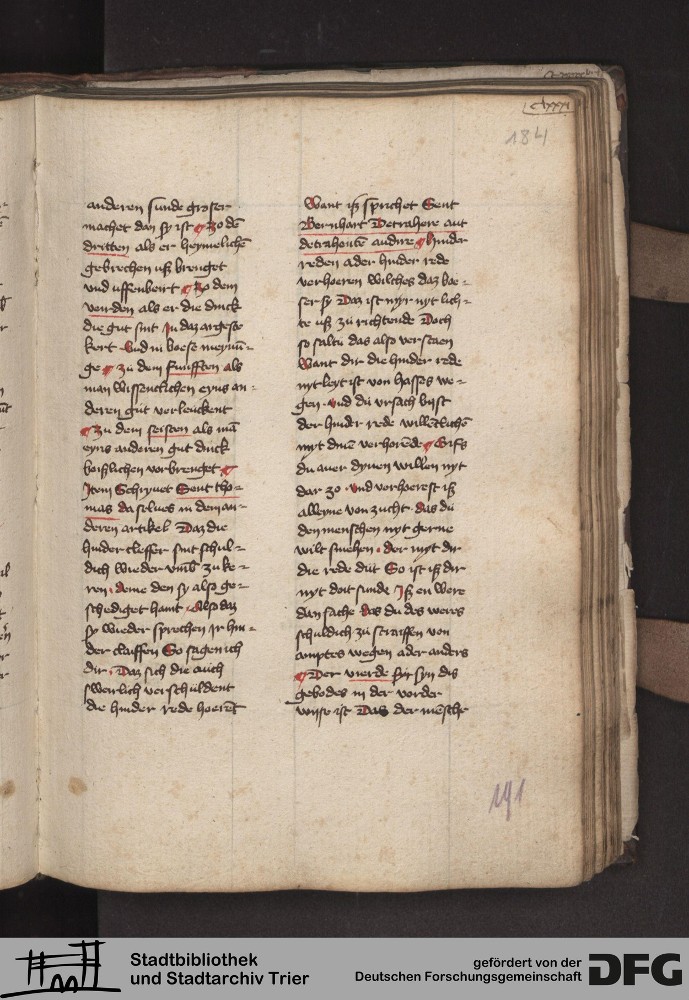 184
anderen sunde groser
machet dan sy ist ¶ zo dē
dritten als er heymelichē
gebrechen uß brenget
und uffenbeirt ¶ Zo dem
vierden als er die dinck
die gut sint In daz argeste
kert Und in boese meynūn-
ge ¶ zu dem funfften als
man wissentlichen eyns an-
deren gut verleuckent
¶ Zu dem seisten als mā
eyns anderen gut dinck
boißlichen vorbrenget ¶
Item Schryvet Sent tho-
mas daselves in dem an-
deren artikel Daz die
hinder cleffer sint schul-
dich wieder vmb zu ke-
ren deme den sy also ge-
schediget haint Also daz
sy wieder sprechen jr hin-
der claffen So sagen ich
dir Daz sich die auch
swerlich verschuldent
die hinder rede hoerēt
Want iß sprichet Sent
Bernhart Detrahere aut
detrahente audire ¶ hinder
reden ader hinder rede
verhoeren wilches daz boe-
ser sy Daz ist myr nyt lich-
te uß zu richtende Doch
so saltu das also verstaen
Want dir die hinder rede
nyt leyt ist von hasses we-
gen und du ursach bist
der hinder rede willētlichē
myt dinē verhorēde ¶ Gifs
du auer dynen willen nyt
dar zo Und verhoerest iß
alleyne von zucht das du
den menschen nyt gerne
wilt smehen der myt dir
die rede dut So ist iß dir
nyt doit sunde Iß en were
dan sache das du des weres
schuldich zu straiffen von
amptes wegen ader anders
¶ Der vierde syn dis
gebodes in der vorder
wijse ist Das der mēsche
191
Stadtbibliothek
und Stadtarchiv Trier
gefördert von der
Deutschen Forschungsgemeinschaft
DFG